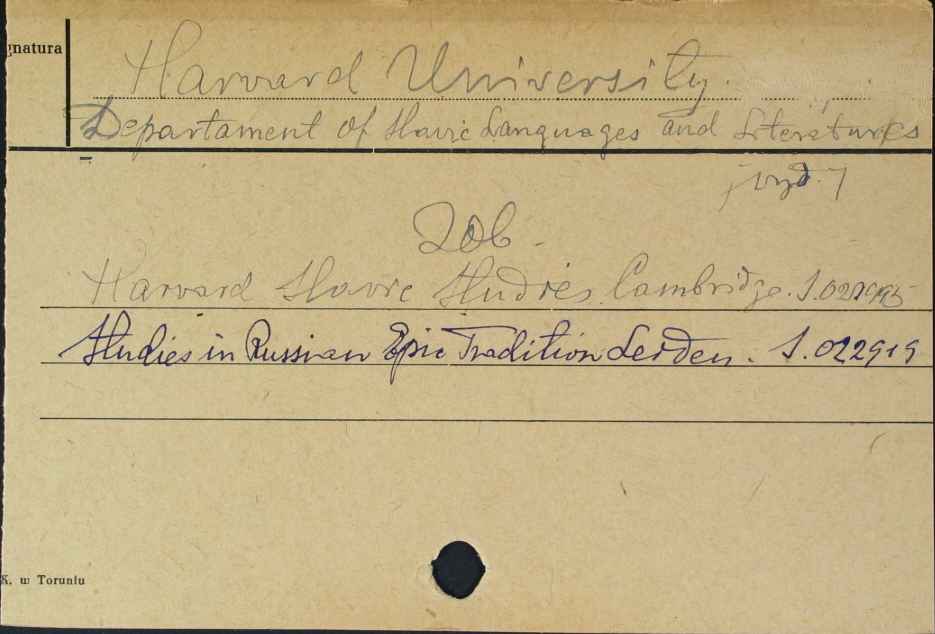 gnatura
Harvard University.
Departament of Slavic Languages and Literatures
/ wyd. /
Zob.
Harvard Slavic Studies. Cambridge. S.
Studies in Russian Epic Tradition Leiden. S. 022919
K. w Toruniu